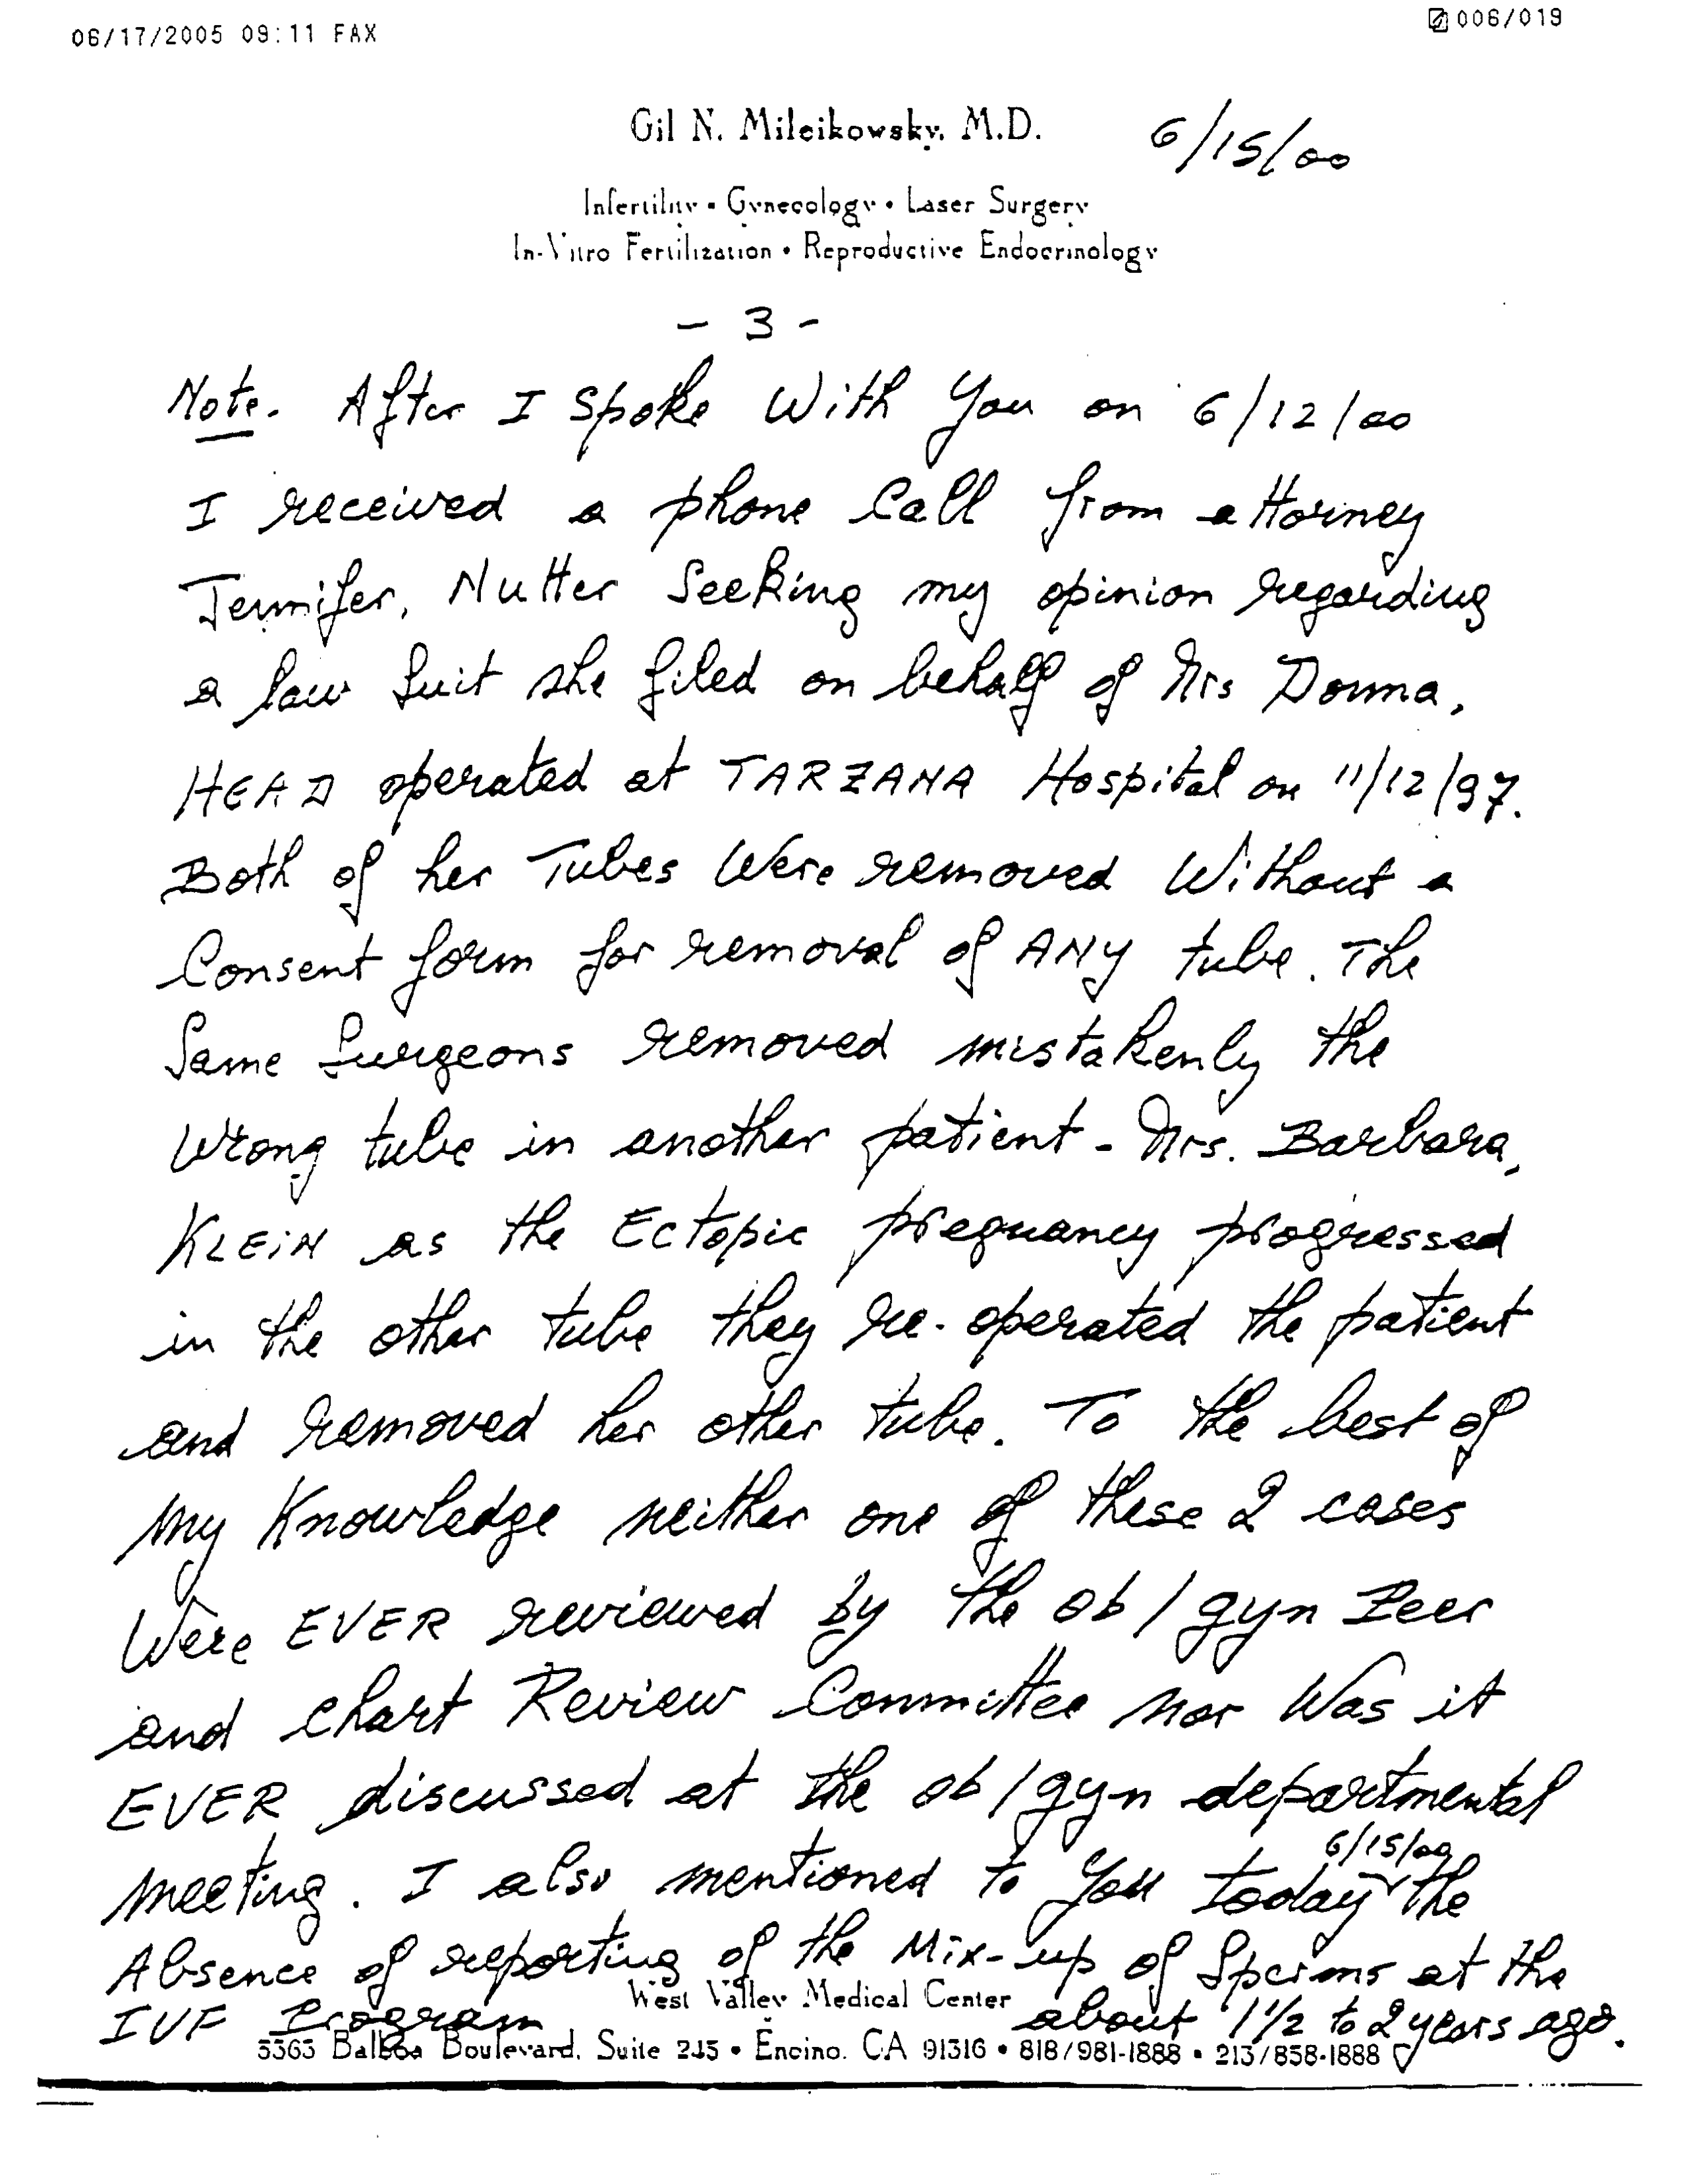 06/17/2005 09:11 FAX
006/019
Gil N. Mileikowsky, M.D.
6/15/00
Infertility • Gynecology • Laser Surgery
In-Vitro Fertilization • Reproductive Endocrinology
- 3 -
Note. After I Spoke With You on 6/12/00
I received a phone Call from attorney
Jennifer, Nutter Seeking my opinion regarding
a law Suit she filed on behalf of Mrs Donna,
HEAD operated at TARZANA Hospital on 11/12/97.
Both of her Tubes Were removed Without a
Consent form for removal of ANY tube. The
Same Surgeons removed mistakenly the
Wrong tube in another patient - Mrs. Barbara,
KLEIN as the Ectopic pregnancy progressed
in the other tube they re-operated the patient
and removed her other tube. To the best of
my Knowledge neither one of these 2 cases
Were EVER reviewed by the ob/gyn Peer
and chart Review Committee nor Was it
EVER discussed at the ob/gyn departmental
meeting. I also mentioned to You today 6/15/00 the
Absence of reporting of the Mix-up of Sperms at the
IVF Program about 1 1/2 to 2 years ago.
West Valley Medical Center
5363 Balboa Boulevard, Suite 245 • Encino, CA 91316 • 818/981-1888 • 213/858-1888